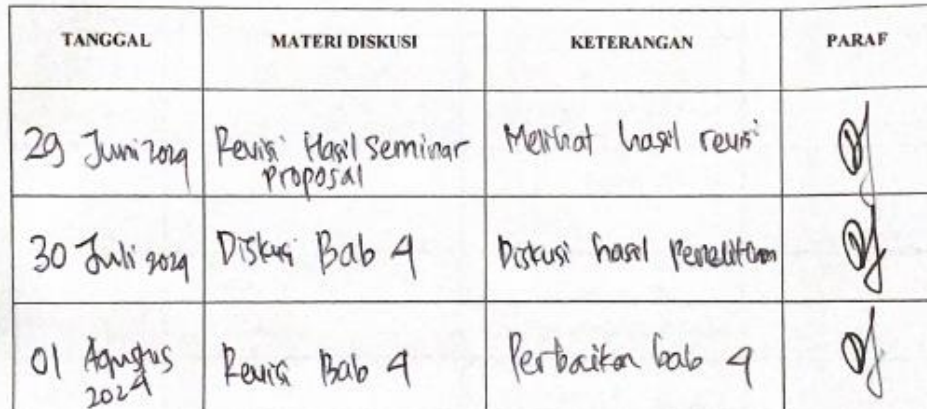 TANGGAL MATERI DISKUSI KETERANGAN PARAF
29 Juni 2024 Revisi Hasil Seminar Melihat hasil revisi
Proposal
30 Juli 2024 Diskusi Bab 4 Diskusi hasil Penelitian
01 Agustus Revisi Bab 4 Perbaikan bab 4
2024